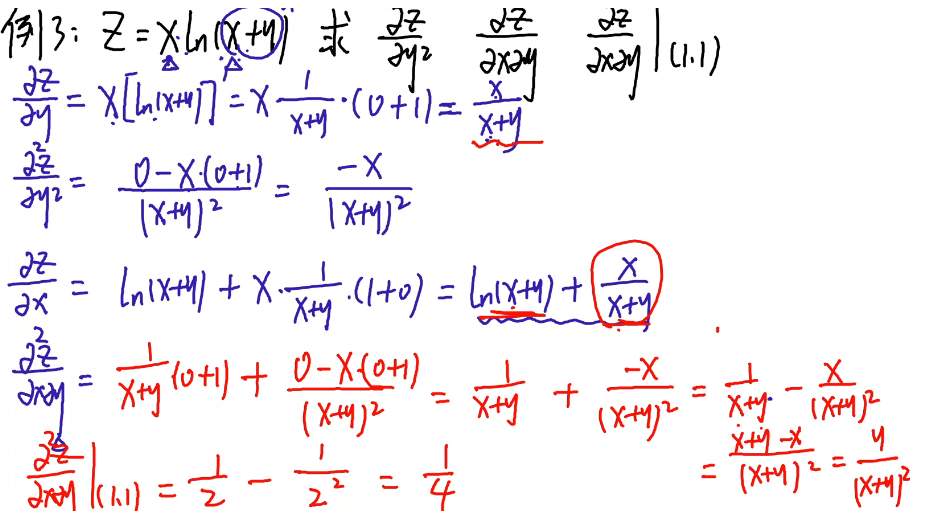 例3: Z = x ln(x+y) 求 ∂Z/∂y² ∂Z/∂x∂y ∂Z/∂x∂y|(1,1)
∂Z/∂y = x[ln(x+y)]' = x · 1/(x+y) · (0+1) = x/(x+y)
∂²Z/∂y² = (0 - x·(0+1))/(x+y)² = -x/(x+y)²
∂Z/∂x = ln(x+y) + x · 1/(x+y) · (1+0) = ln(x+y) + x/(x+y)
∂²Z/∂x∂y = 1/(x+y) (0+1) + (0 - x·(0+1))/(x+y)² = 1/(x+y) + -x/(x+y)² = 1/(x+y) - x/(x+y)²
= (x+y-x)/(x+y)² = y/(x+y)²
∂²Z/∂x∂y|(1,1) = 1/2 - 1/2² = 1/4